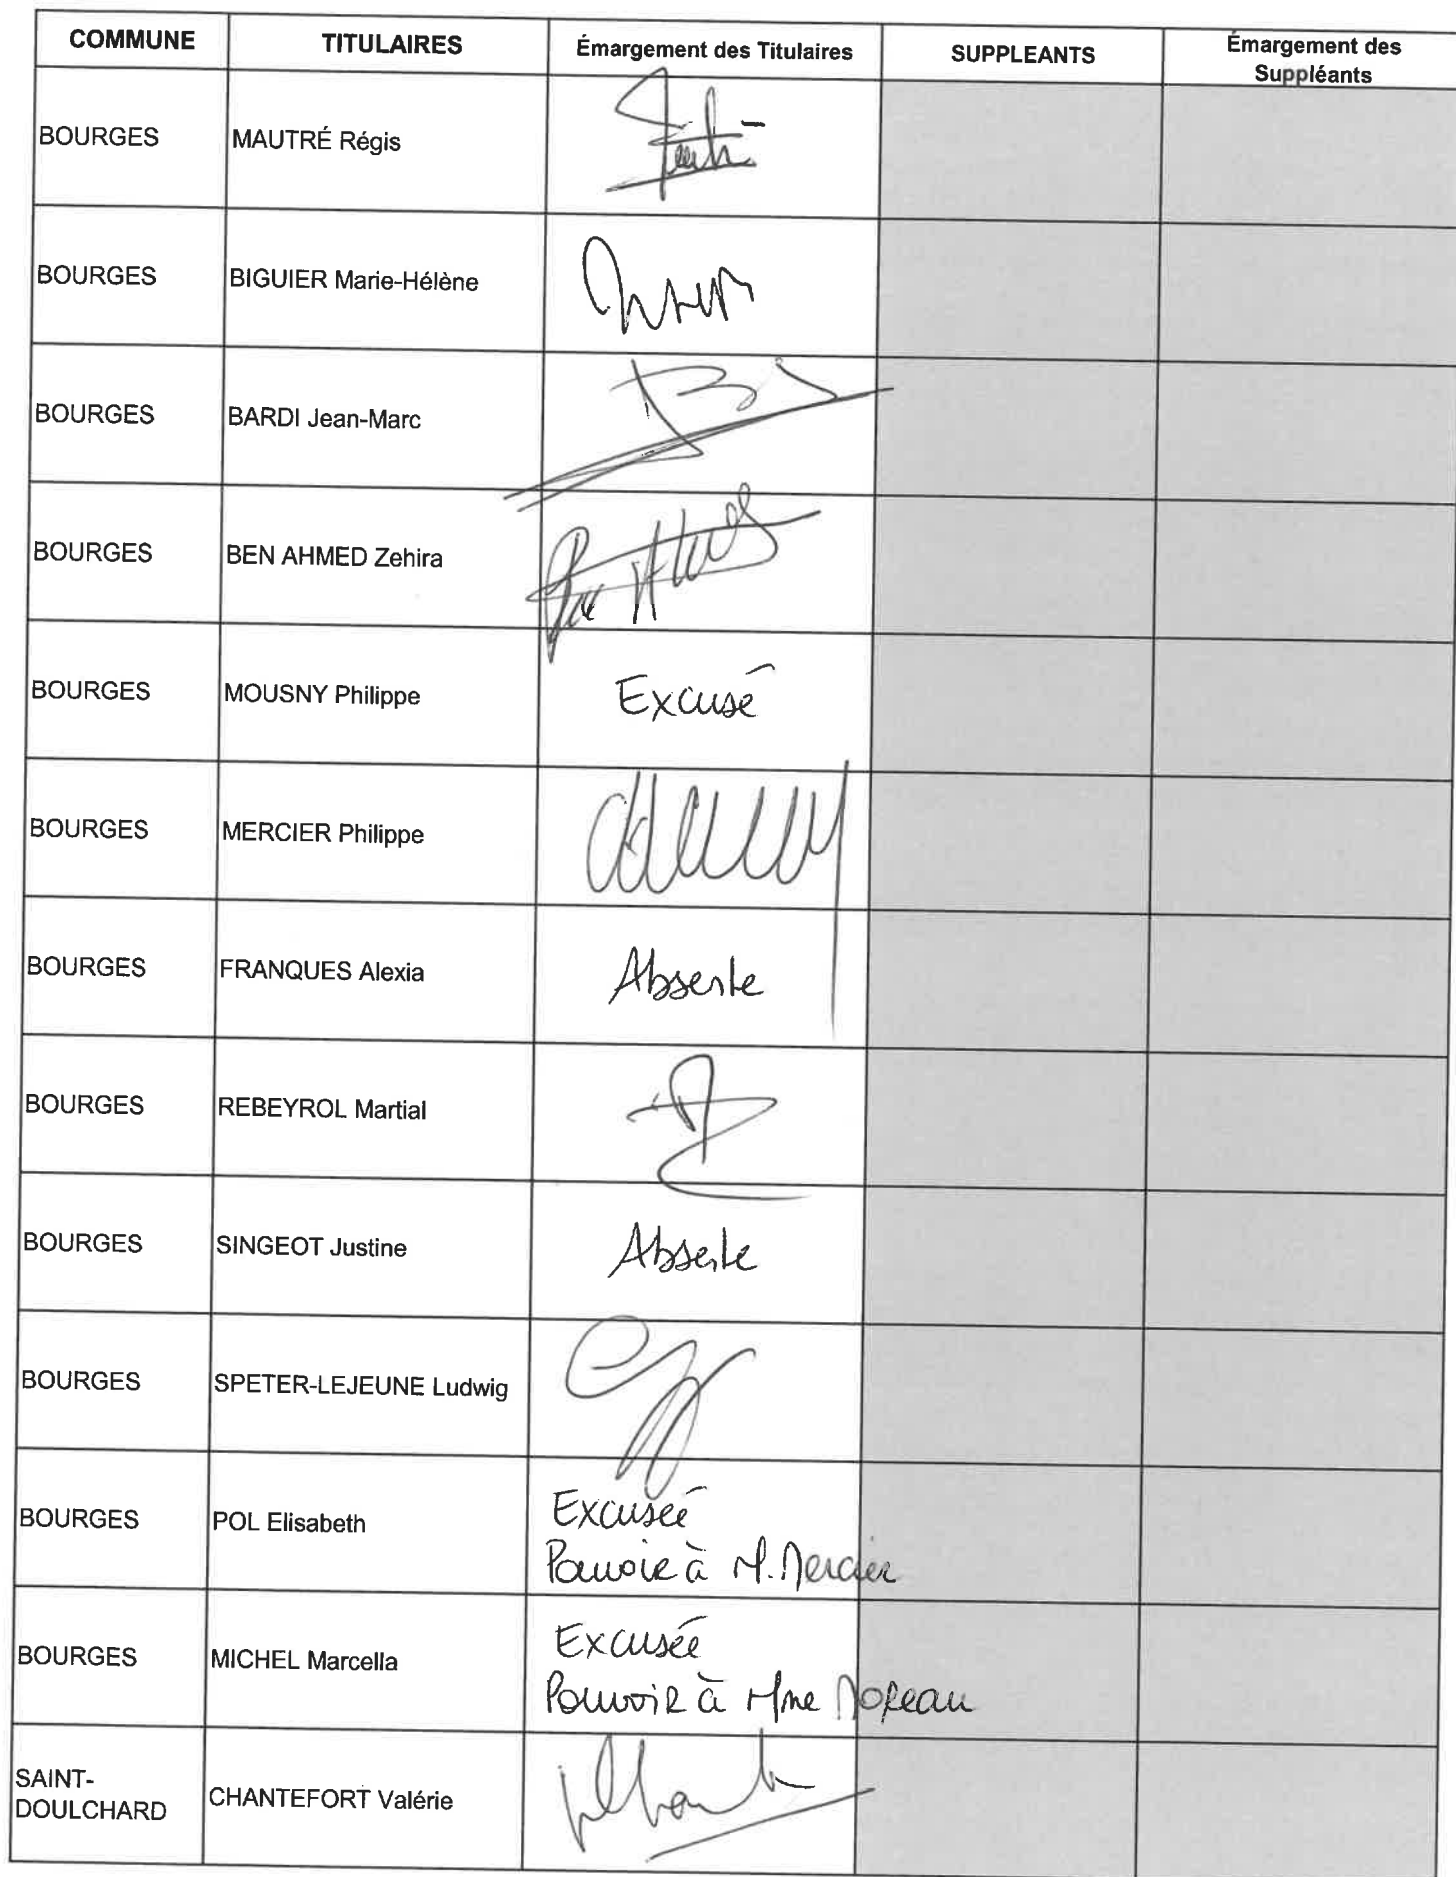 COMMUNE TITULAIRES Émargement des Titulaires SUPPLEANTS Émargement des
Suppléants
BOURGES MAUTRÉ Régis
BOURGES BIGUIER Marie-Hélène
BOURGES BARDI Jean-Marc
BOURGES BEN AHMED Zehira
BOURGES MOUSNY Philippe Excusé
BOURGES MERCIER Philippe
BOURGES FRANQUES Alexia Absente
BOURGES REBEYROL Martial
BOURGES SINGEOT Justine Absente
BOURGES SPETER-LEJEUNE Ludwig
BOURGES POL Elisabeth Excusée
Pouvoir à M. Mercier
BOURGES MICHEL Marcella Excusée
Pouvoir à Mme Moreau
SAINT-
DOULCHARD CHANTEFORT Valérie